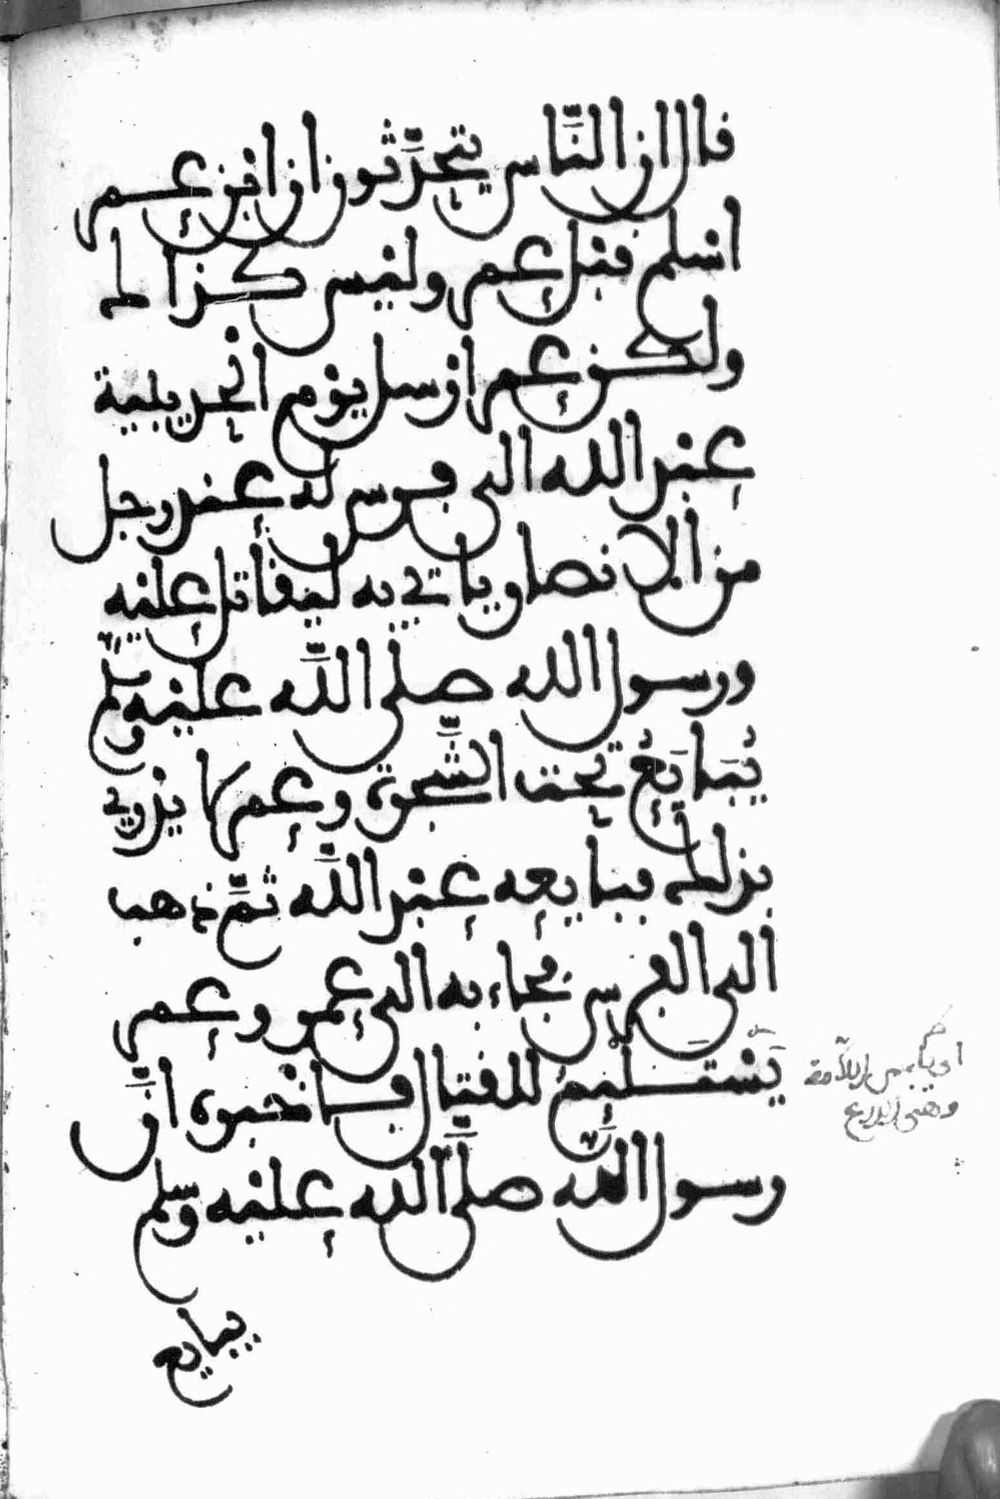 قال ان النَّاس يتحدَّثون ان ابن عمر
اسلم قبل عمر وليس كذالك
ولكن عمر ارسل يوم الحديبية
عبد الله الى فرس له عند رجل
من الانصار ياتي به ليقاتل عليه
ورسول الله صلى اللَّه عليه وسلم
يُبَايَعُ تحت الشَّجرة وعمر لا يدري
بذلك فبايعه عبد اللَّه ثمَّ ذهب
الى الفرس فجاء به الى عمر وعمر
يَّسْتَلْئِمُ للقتال فاخبره انَّ
رسول اللَّه صلَّى الله عليه وسلم
يبايع
اي يلبس اللَّامة
وهي الدرع